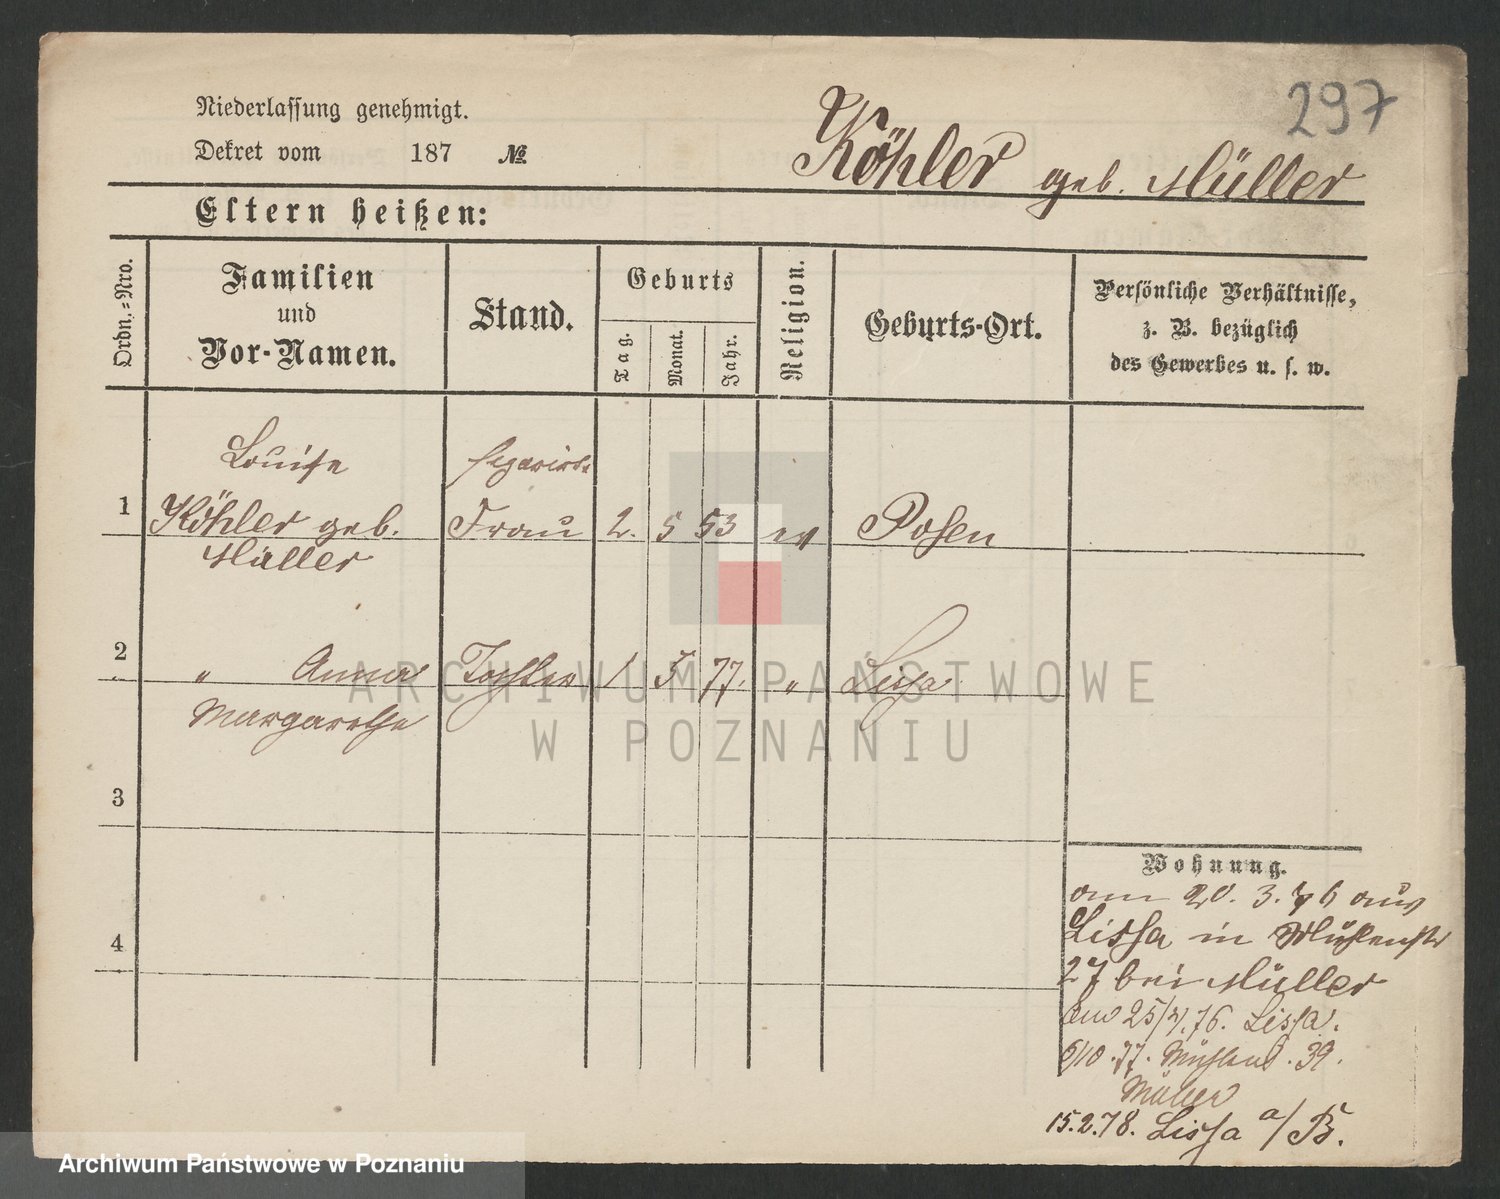 297
Niederlassung genehmigt.
Dekret vom 187 №
Köhler geb. Müller
Eltern heißen:
Ordn.-Nro.
Familien
und
Vor-Namen.
Stand.
Geburts
Tag.
Monat.
Jahr.
Religion.
Geburts-Ort.
Persönliche Verhältnisse,
z. B. bezüglich
des Gewerbes u. s. w.
Louise
1 Köhler geb. Frau 2. 5 53 ev Posen
Müller
2 " Anna Tochter 1 77. " Lissa
Margarethe
3
4
Wohnung.
am 20. 3. 76 aus
Lissa in Mühlenstr
27 bei Müller
76. Lissa.
6/10. 77. 39.
Müller
15.2.78. Lissa a/B.
ARCHIWUM PAŃSTWOWE
W POZNANIU
Archiwum Państwowe w Poznaniu